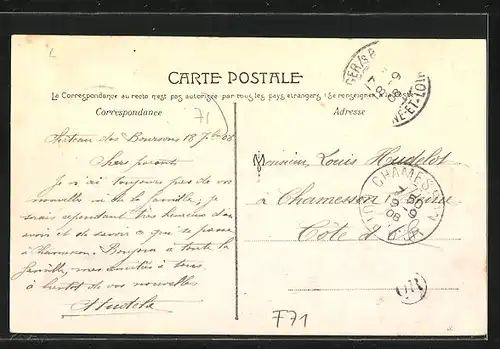 CARTE POSTALE
La Correspondance au recto n'est pas autorisée par tous les pays étrangers (Se renseigner à la
Correspondance
Adresse
71
Chers parents
Je n'ai toujours pas de vos
nouvelles ni de la famille, je
serais cependant très heureux d'en
avoir et de savoir ce que se passe
à Chamesson. Bonjour à toute la
famille, mes amitiés à tous
à bientôt de vos nouvelles
Hudelo
Monsieur Louis Hudelot
à Chamesson
Côte d'Or
CHAMESSON
ET-LOIR
OR
F71